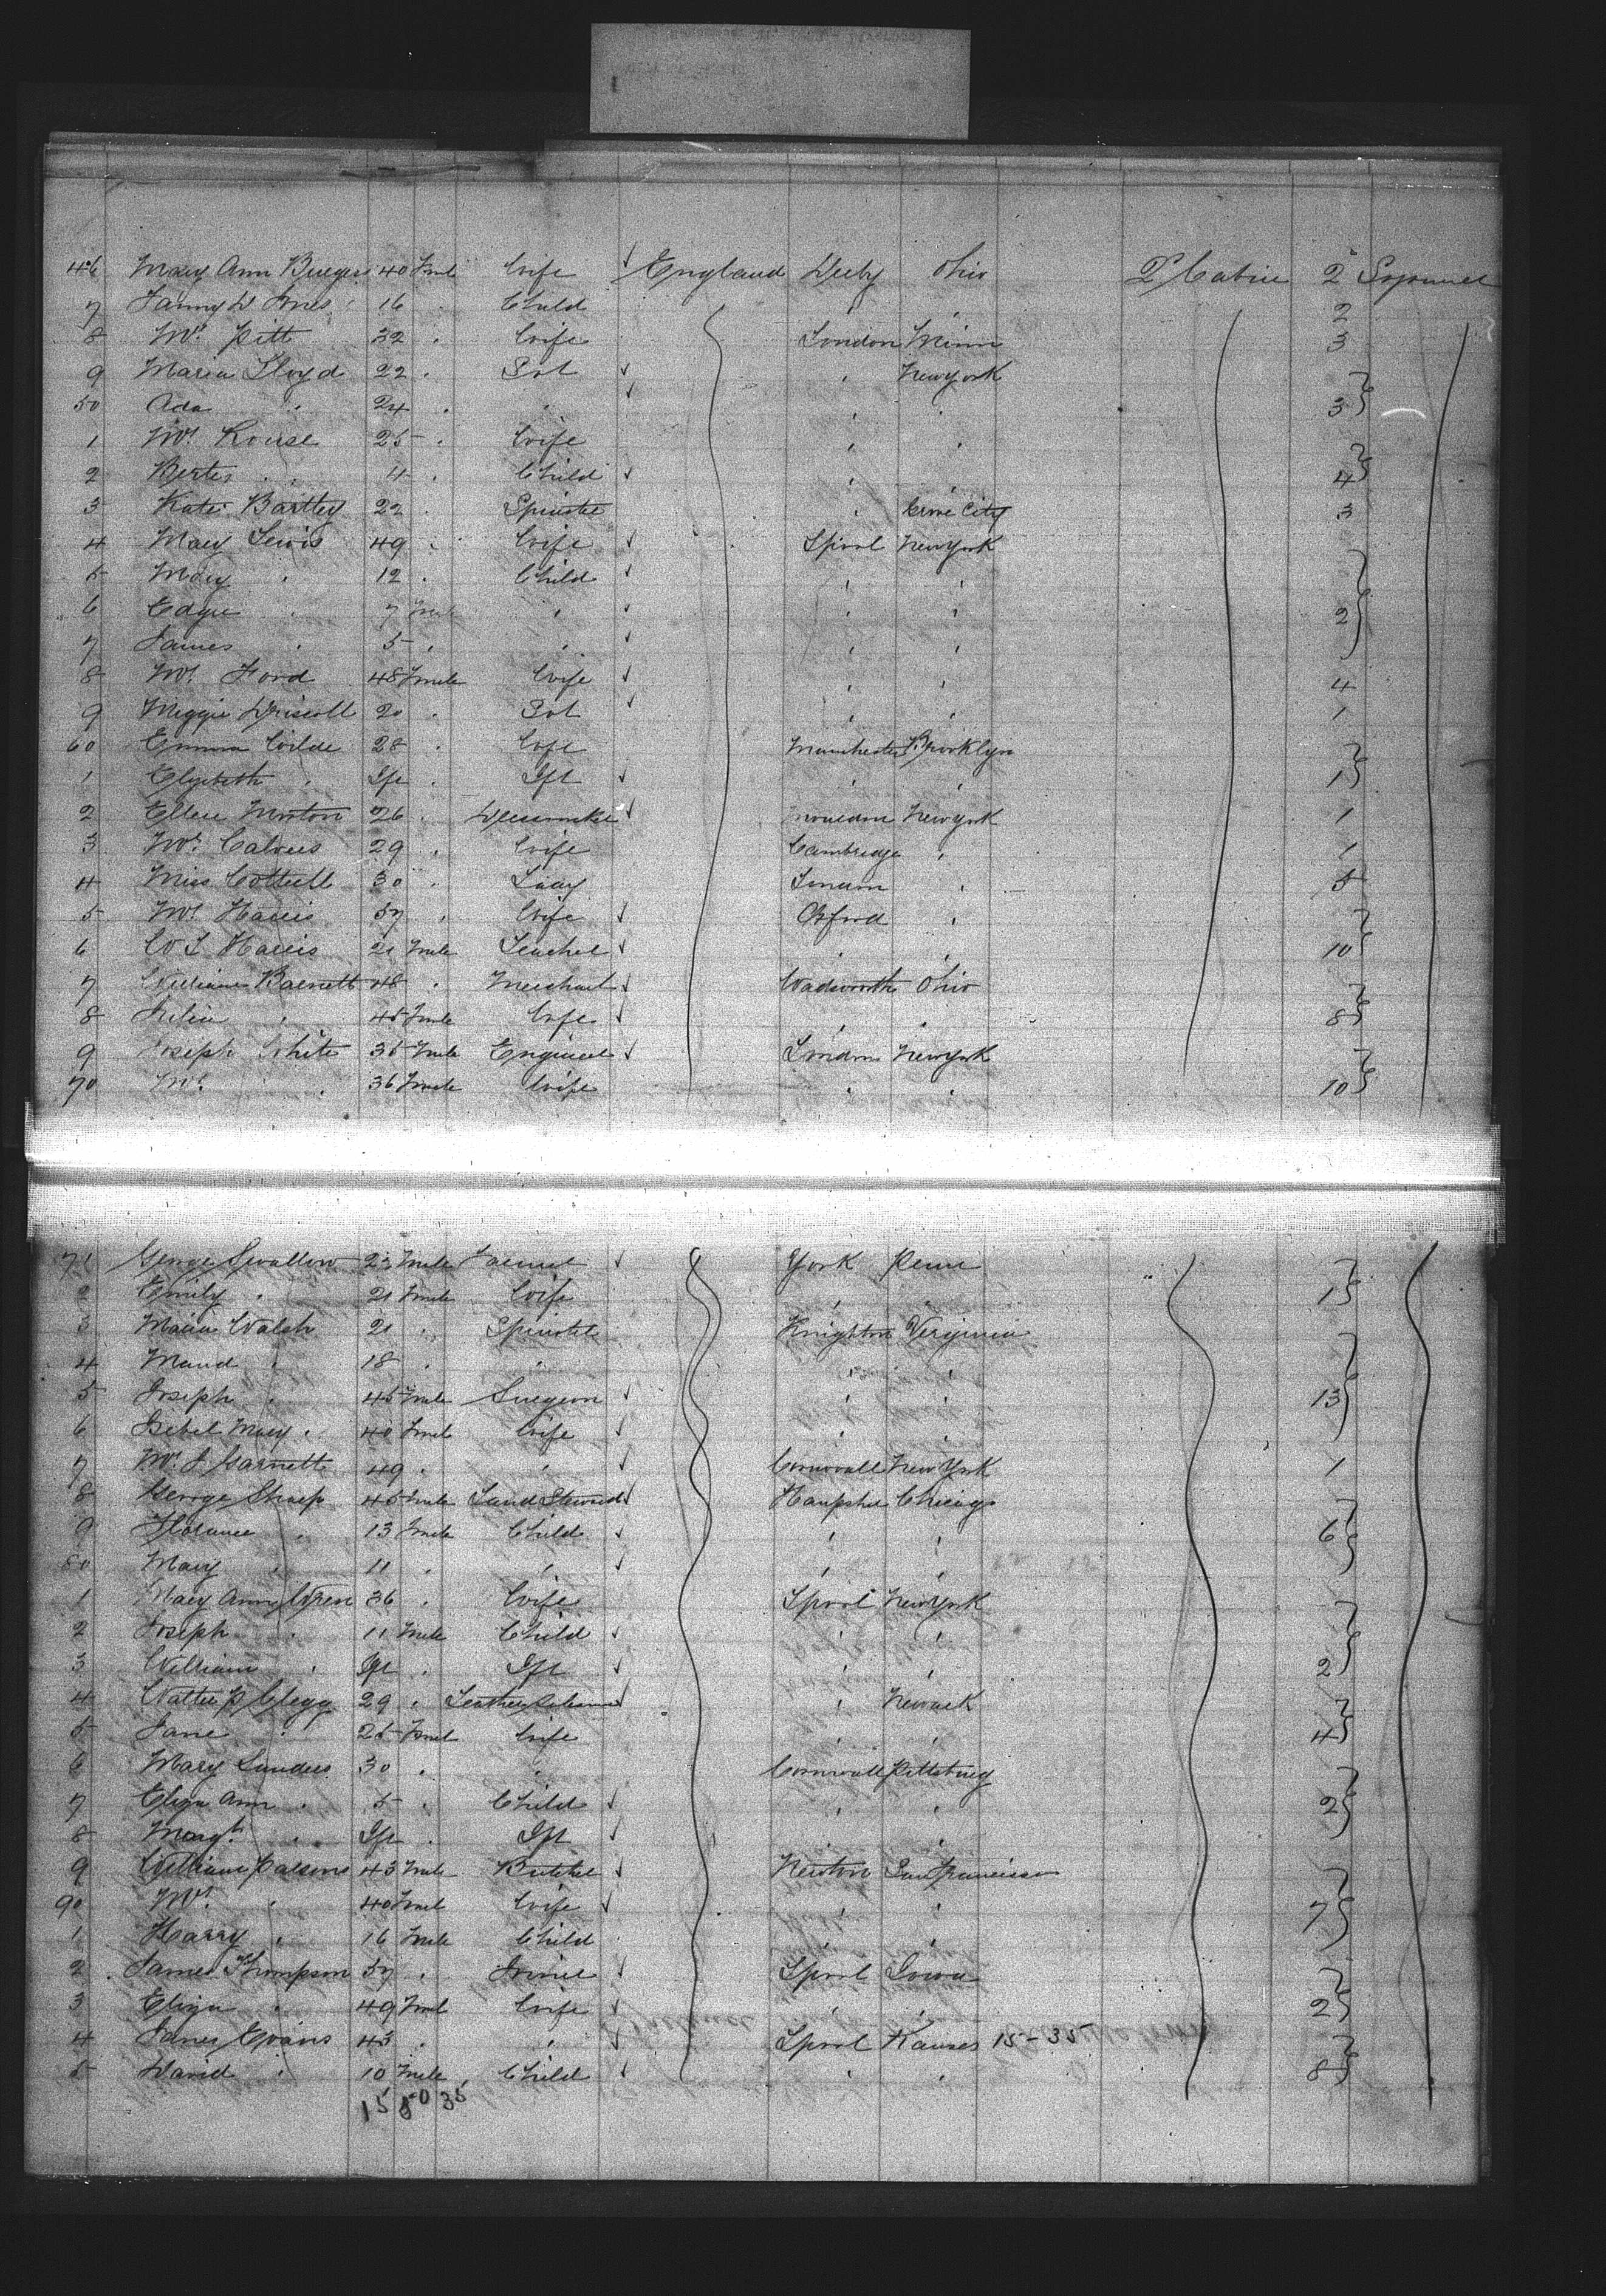 46 Mary Ann 40 Fmle Wife England Derby Ohio 2d Cabin 2 Sojourner
7 Fanny D Jones 16 " Child 2
8 Mrs Pitt 32 " Wife London Minn 3
9 Maria Lloyd 22 " Spt " New York
50 Ada " 24 " " " " 3
1 Mrs Rouse 25 " Wife " "
2 Bertes " 4 " Child " " 4
3 Kate Bartley 22 " Spinster " City 3
4 Mary Lewis 49 " Wife Lpool New York
5 Mary " 12 " Child " "
6 Edgar " 7 Male " " " 2
7 James " 5 " " " "
8 Mrs Ford 48 Fmle Wife " " 4
9 Maggie Driscoll 20 " Spt " " 1
60 Emma Wilde 28 " Wife Manchester Brooklyn
1 Elizabeth " Ift " Ift " " 1
2 Ellen Morton 26 " Dressmaker New York 1
3 Mrs 29 " Wife Cambridge " 1
4 Miss Cottrell 30 " Lady London " 5
5 Mrs Harris 57 " Wife Oxford "
6 W L Harris 21 Male Teacher " " 10
7 William Barnett 48 " Merchant Wadsworth Ohio
8 Julia " 45 Fmle Wife " " 8
9 Joseph White 35 Male Engineer London New York
70 Mrs " 36 Fmle Wife " " 10
71 George Swallow 23 Male Farmer York Penn
2 Emily " 21 Fmle Wife " " 1
3 Maria Walsh 21 " Spinster Knighton Virginia
4 Maud " 18 " " " "
5 Joseph " 45 Male Surgeon " " 13
6 Isabel Mary " 40 Fmle Wife " "
7 Mrs J Garnett 49 " " Cornwall New York 1
8 George Sharp 45 Male Land Steward Hampshr Chicago
9 Florance " 13 Fmle Child " " 6
80 Mary " 11 " " " "
1 Mary Ann Wren 36 " Wife Lpool New York
2 Joseph " 11 Male Child " "
3 William " Ift " Ift " " 2
4 Walter P Clegg 29 " Leather " Newark
5 Jane " 25 Fmle Wife " " 4
6 Mary Sanders 30 " " Cornwall Pittsburg
7 Eliza Ann " 5 " Child " " 2
8 Margt " Ift " Ift " "
9 William Parsons 43 Male Butcher Newton San Francisco
90 Mrs " 40 Fmle Wife " " 7
1 Harry " 16 Male Child " "
2 James Thompson 57 " Joiner Lpool Iowa
3 Eliza " 49 Fmle Wife " " 2
4 James Evans 43 " " Lpool Kansas 15-35
5 David " 10 Male Child " " 8
15 50 35